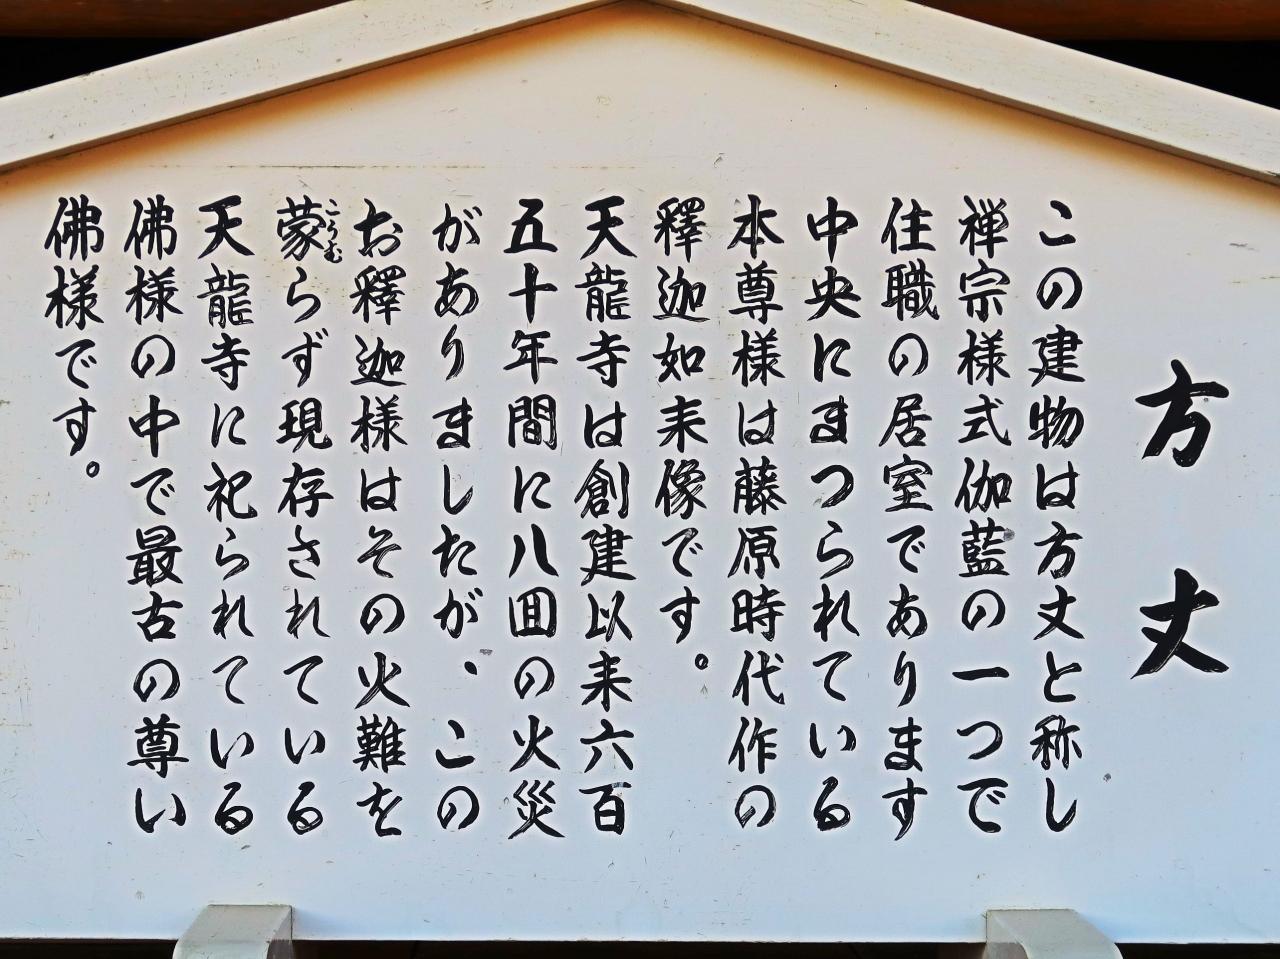 方丈
この建物は方丈と称し
禅宗様式伽藍の一つで
住職の居室であります
中央にまつられている
本尊様は藤原時代作の
釋迦如来像です。
天龍寺は創建以来六百
五十年間に八囬の火災
がありましたが、この
お釋迦様はその火難を
蒙らず現存されている
こうむ
天龍寺に祀られている
佛様の中で最古の尊い
佛様です。